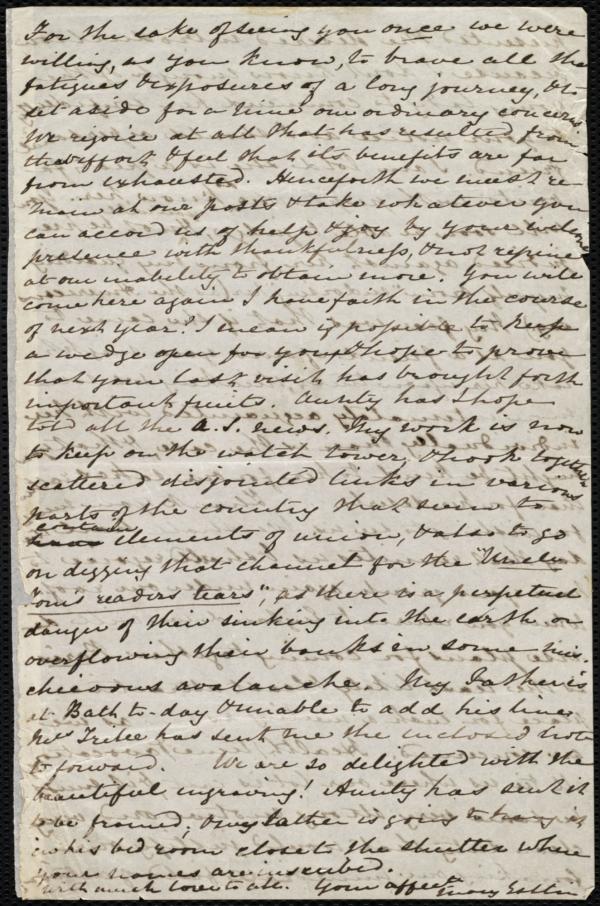 For the sake of seeing you once we were
willing, as you know, to brave all the
fatigues & exposures of a long journey, & to
set aside for a time our ordinary concerns.
We rejoice at all that has resulted from
that effort, & feel that its benefits are far
from exhausted. Henceforth we must re-
main at our posts & take whatever you
can accord us of help & joy by your welcome
presence with thankfulness, & not repine
at our inability to obtain more. You will
come here again I have faith in the course
of next year! I mean if possible to keep
a wedge open for you & hope to prove
that your last visit has brought forth
important fruits. Aunty has I hope
told all the A.S. news. My work is now
to keep on the watch tower, & hook together
scattered disjointed links in various
parts of the country that seem to
contain elements of union, & also to go
on digging that channel for the "Uncle
Tom's readers tears", as there is a perpetual
danger of their sinking into the earth or
overflowing their banks in some mis-
chievous avalanche. My Father is
at Bath to-day & unable to add his line
has sent me the inclosed note
to forward. We are so delighted with the
beautiful ingraving! Aunty has sent it
to be framed, & my Father is going to hang it
in his bed room close to the shutter where
your names are inscribed.
With much love to all. Your affecte Mary Estlin